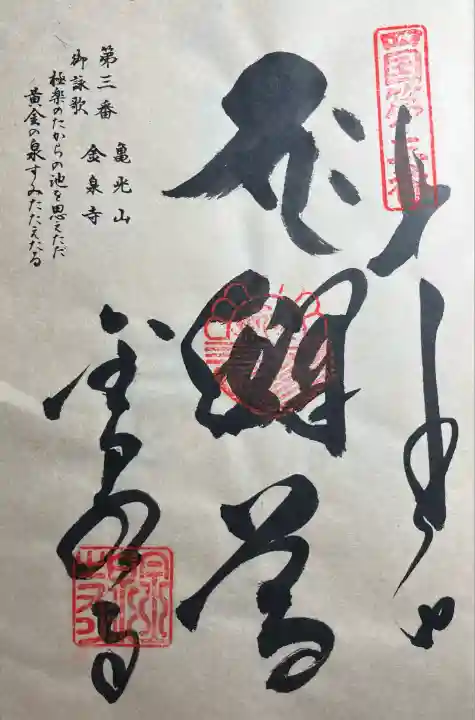 奉拝
釈迦尊
金泉寺
四国第三番
第三番　亀光山
金泉寺
御詠歌
極楽のたからの池を思えただ
黄金の泉すみたたえたる